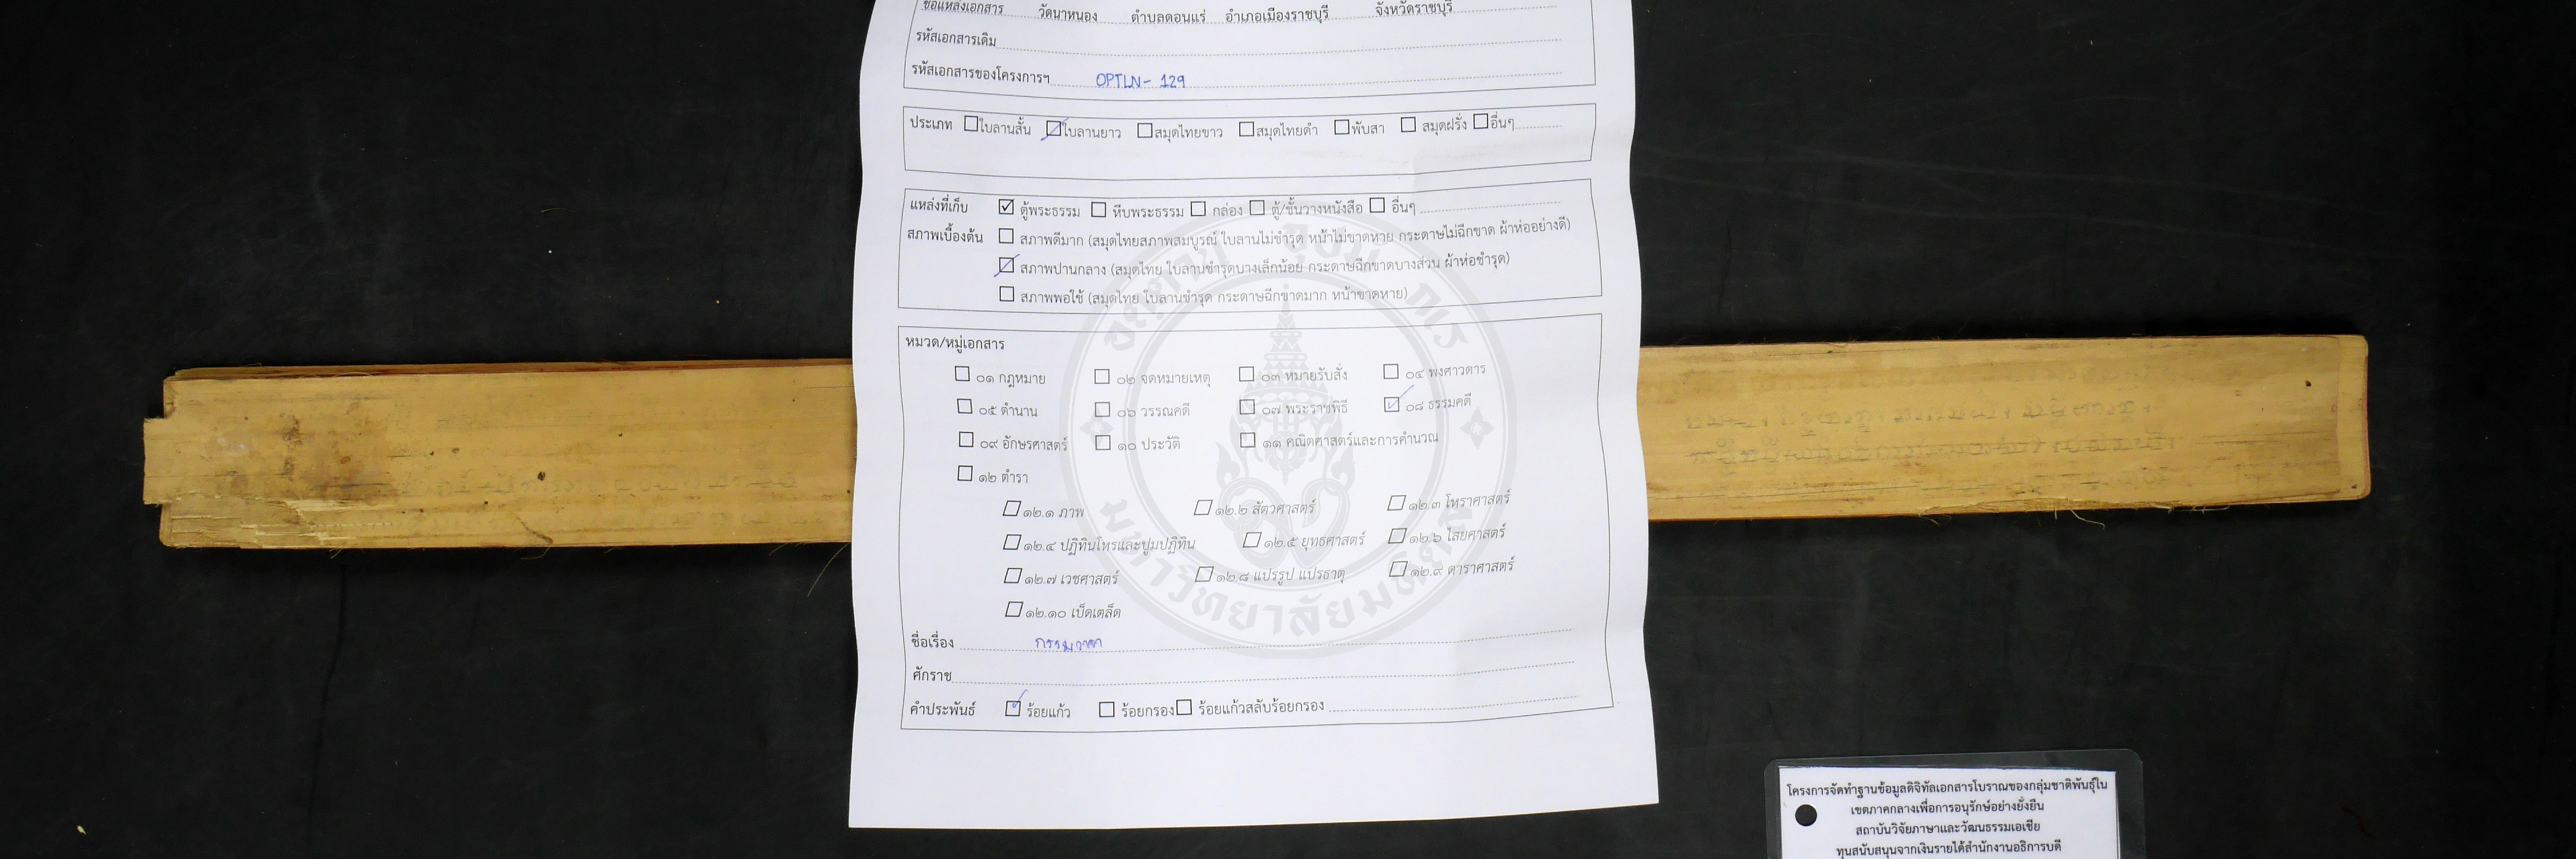 ชื่อแหล่งเอกสาร วัดนาหนอง ตำบลดอนแร่ อำเภอเมืองราชบุรี จังหวัดราชบุรี
รหัสเอกสารเดิม
รหัสเอกสารของโครงการฯ OPTLN- 129
ประเภท ใบลานสั้น ใบลานยาว สมุดไทยขาว สมุดไทยดำ พับสา สมุดฝรั่ง อื่นๆ
แหล่งที่เก็บ ตู้พระธรรม หีบพระธรรม กล่อง ตู้/ชั้นวางหนังสือ อื่นๆ
สภาพเบื้องต้น สภาพดีมาก (สมุดไทยสภาพสมบูรณ์ ใบลานไม่ชำรุด หน้าไม่ขาดหาย กระดาษไม่ฉีกขาด ผ้าห่ออย่างดี)
สภาพปานกลาง (สมุดไทย ใบลานชำรุดบางเล็กน้อย กระดาษฉีกขาดบางส่วน ผ้าห่อชำรุด)
สภาพพอใช้ (สมุดไทย ใบลานชำรุด กระดาษฉีกขาดมาก หน้าขาดหาย)
หมวด/หมู่เอกสาร
๐๑ กฎหมาย ๐๒ จดหมายเหตุ ๐๓ หมายรับสั่ง ๐๔ พงศาวดาร
๐๕ ตำนาน ๐๖ วรรณคดี ๐๗ พระราชพิธี ๐๘ ธรรมคดี
๐๙ อักษรศาสตร์ ๑๐ ประวัติ ๑๑ คณิตศาสตร์และการคำนวณ
๑๒ ตำรา
๑๒.๑ ภาพ ๑๒.๒ สัตวศาสตร์ ๑๒.๓ โหราศาสตร์
๑๒.๔ ปฏิทินโหรและปูมปฏิทิน ๑๒.๕ ยุทธศาสตร์ ๑๒.๖ ไสยศาสตร์
๑๒.๗ เวชศาสตร์ ๑๒.๘ แปรรูป แปรธาตุ ๑๒.๙ ดาราศาสตร์
๑๒.๑๐ เบ็ดเตล็ด
ชื่อเรื่อง กรรมวาจา
ศักราช
คำประพันธ์ ร้อยแก้ว ร้อยกรอง ร้อยแก้วสลับร้อยกรอง
มหาวิทยาลัยมหิดล
โครงการจัดทำฐานข้อมูลดิจิทัลเอกสารโบราณของกลุ่มชาติพันธุ์ใน
เขตภาคกลางเพื่อการอนุรักษ์อย่างยั่งยืน
สถาบันวิจัยภาษาและวัฒนธรรมเอเชีย
ทุนสนับสนุนจากเงินรายได้สำนักงานอธิการบดี